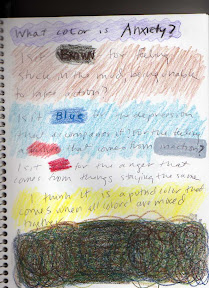 What color is Anxiety?
Is it Brown for feeling
stuck in the mud being unable
to take action?
Is it Blue for the depression
that accompanies it, or the feeling
that comes from inaction?
Is it for the anger that
comes from things staying the same
I think it is a putrid color that
comes when all colors are mixed
together